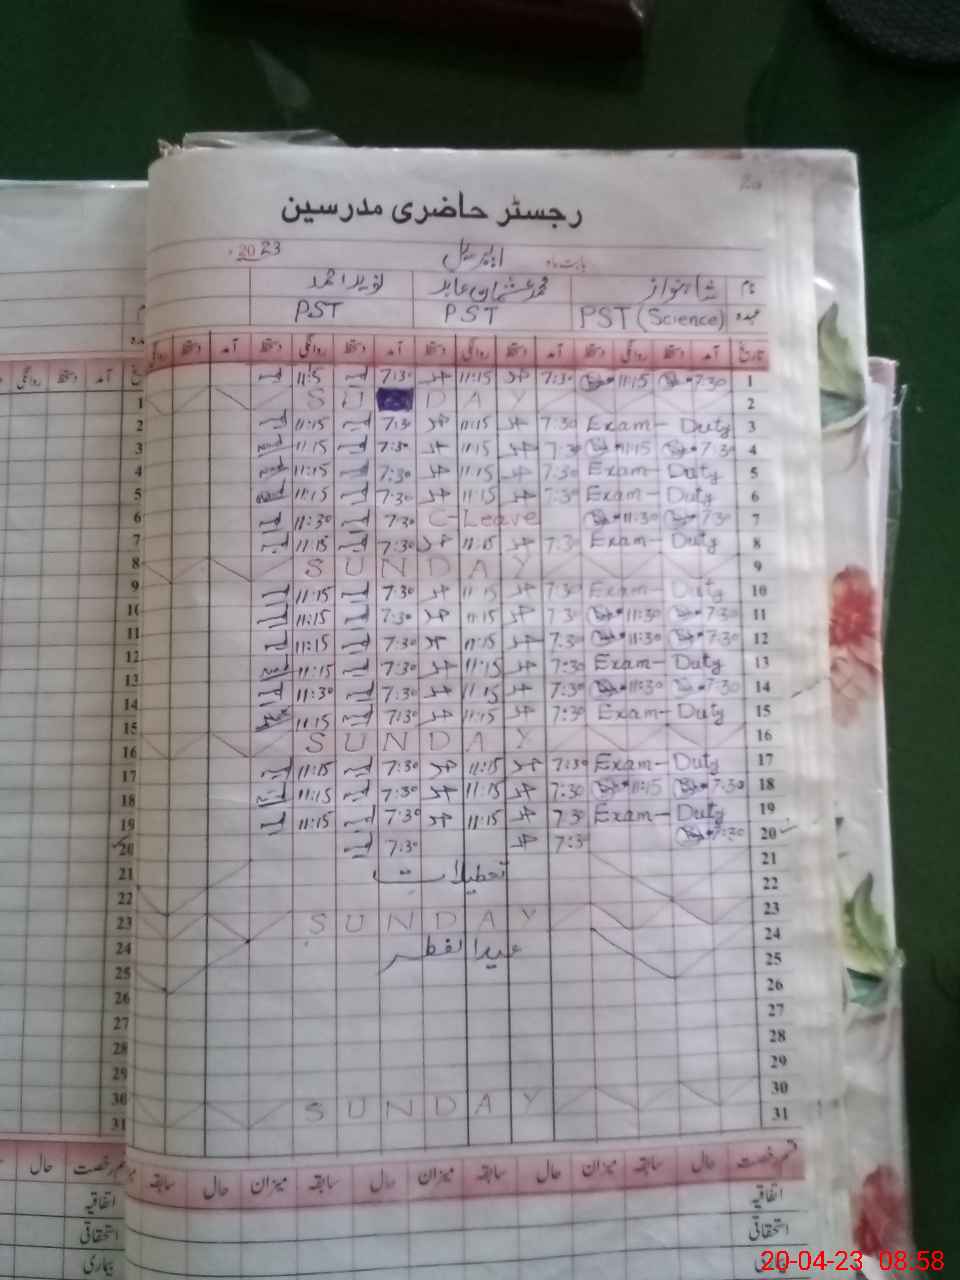 رجسٹر حاضری مدرسین
بابت ماہ اپریل 2023
نام شاہنواز محمد عثمان عابد نوید احمد
عہدہ PST (Science) PST PST
تاریخ آمد دستخط روانگی دستخط آمد دستخط روانگی دستخط آمد دستخط روانگی دستخط آمد دستخط روانگی
1 7:30 11:15 7:30 11:15 7:30 11:5
2 SUNDAY
3 Exam - Duty 7:30 11:15 7:30 11:15
4 7:30 11:15 7:30 11:15 7:30 11:15
5 Exam - Duty 7:30 11:15 7:30 11:15
6 Exam - Duty 7:30 11:15 7:30 11:15
7 7:30 11:30 C-Leave 7:30 11:30
8 Exam - Duty 7:30 11:15 7:30 11:15
9 SUNDAY
10 Exam - Duty 7:30 11:15 7:30 11:15
11 7:30 11:30 7:30 11:15 7:30 11:15
12 7:30 11:30 7:30 11:15 7:30 11:15
13 Exam - Duty 7:30 11:15 7:30 11:15
14 7:30 11:30 7:30 11:15 7:30 11:30
15 Exam - Duty 7:30 11:15 7:30 11:15
16 SUNDAY
17 Exam - Duty 7:30 11:15 7:30 11:15
18 7:30 11:15 7:30 11:15 7:30 11:15
19 Exam - Duty 7:30 11:15 7:30 11:15
20 7:30 7:30 7:30
21
22 تعطیلات
23 SUNDAY
24
25 عیدالفطر
26
27
28
29
30 SUNDAY
31
قسم رخصت حال سابقہ میزان حال سابقہ میزان حال سابقہ میزان حال سابقہ
اتفاقیہ
استحقاقی
20-04-23 08.58
آمد دستخط روانگی
1
2
3
4
5
6
7
8
9
10
11
12
13
14
15
16
17
18
19
20
21
22
23
24
25
26
27
28
29
30
31
قسم رخصت حال
اتفاقیہ
استحقاقی
بیماری